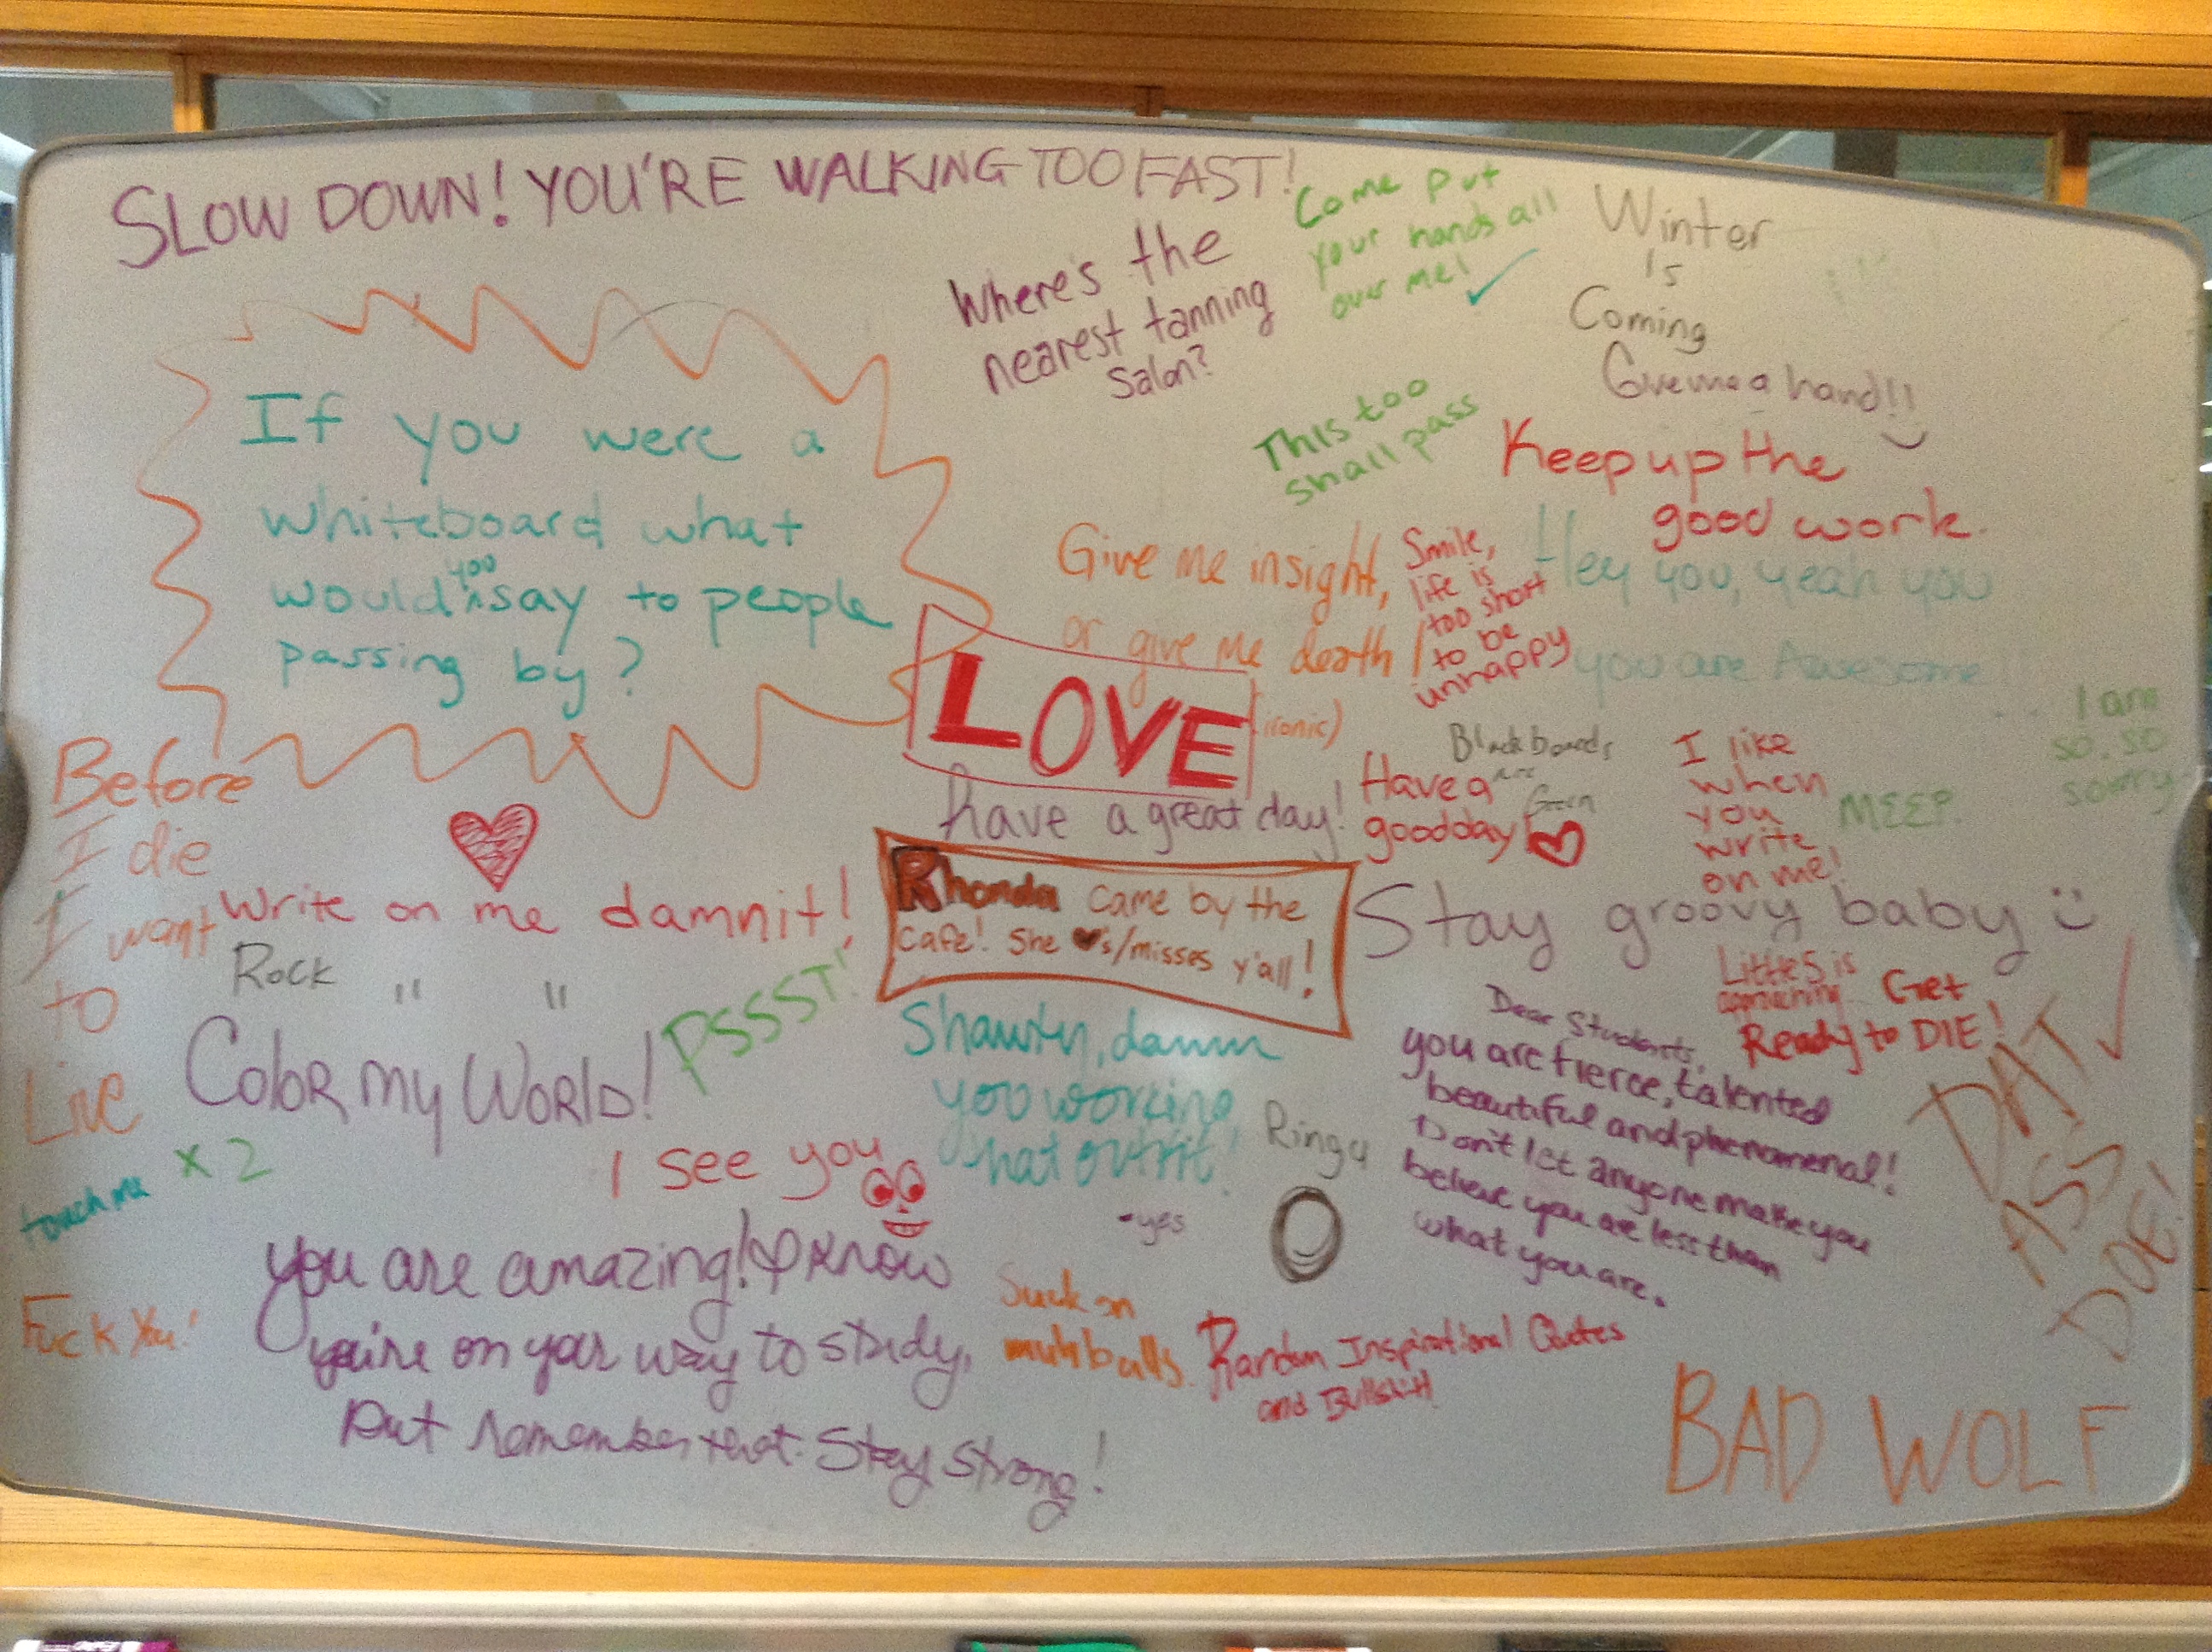 SLOW DOWN! YOU'RE WALKING TOO FAST!
If you were a
whiteboard what
would you say to people
passing by?
Where's the
nearest tanning
salon?
Come put
your hands all
over me!
Winter
is
Coming
Give me a hand!!
This too
shall pass
Keep up the
good work.
Give me insight,
or give me death!
(ironic)
Smile,
life is
too short
to be
unhappy
Hey you, yeah you
you are Awesome
LOVE
have a great day!
Blackboards
are
Green
Have a
good day!
I like
when
you
write
on me!
MEEP.
I am
so, so
sorry
Before
I die
I want
to
Live
Write on me damnit!
Rock " "
Color my World!
PSSST!
Rhonda came by the
Cafe! She ♥'s/misses y'all!
Stay groovy baby
Little 5 is
approaching Get
Ready to DIE!
Shawty, damn
you working
that outfit!
-yes
Dear Students,
you are fierce, talented
beautiful and phenomenal!
Don't let anyone make you
believe you are less than
what you are.
DAT
ASS
DOE!
x2
touch me
I see you
you are amazing! I know
you're on your way to study,
but remember that. Stay strong!
Fuck You!
Suck on
balls.
Random Inspirational Quotes
and Bullshit!
BAD WOLF